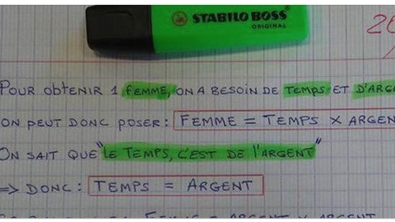 STABILO BOSS
ORIGINAL
POUR OBTENIR 1 FEMME, ON A BESOIN DE TEMPS ET D'ARGE
ON PEUT DONC POSER: FEMME = TEMPS X ARGEN
ON SAIT QUE "LE TEMPS, C'EST DE l'ARGENT"
=> DONC: TEMPS = ARGENT